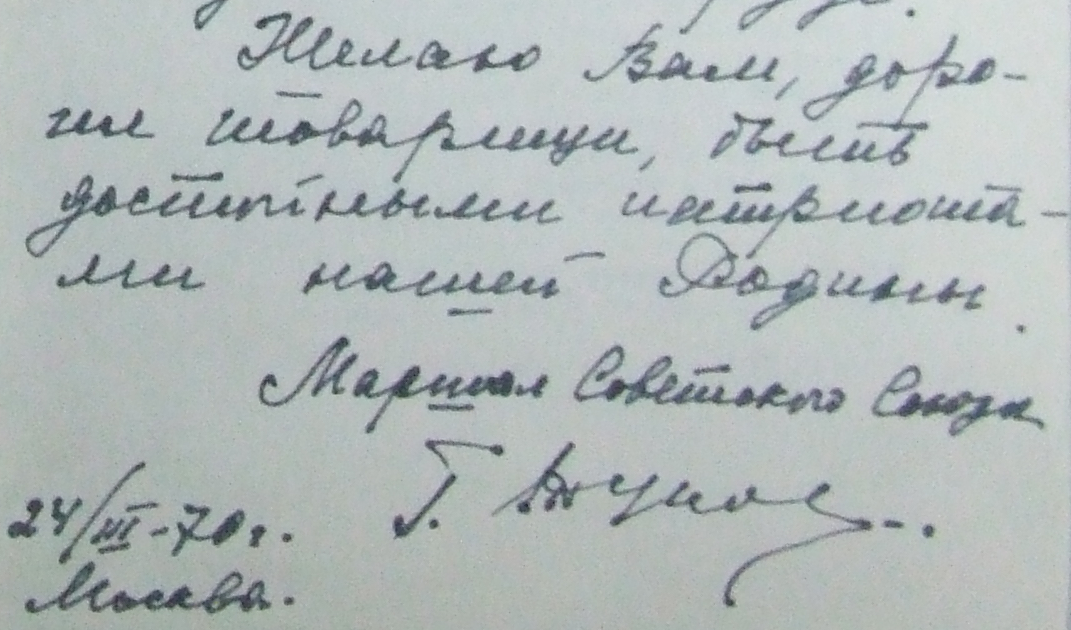 Желаю Вам, доро-
гие товарищи, быть
достойными патриота-
ми нашей Родины.
Маршал Советского Союза
Г. Жуков.
24/III-70 г.
Москва.